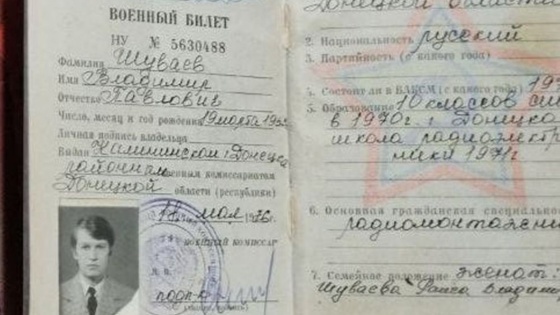 ВОЕННЫЙ БИЛЕТ
НУ № 5630488
Фамилия Шуваев
Имя Владимир
Отчество Павлович
Число, месяц и год рождения 19 марта 195
Личная подпись владельца
Выдан Калининским г. Донецка
районным военным комиссариатом
Донецкой области (республики)
мая 1976
ВОЕННЫЙ КОМИССАР
подп-к
Донецкой области
2. Национальность русский
3. Партийность (с какого года)
4. Состоит ли в ВЛКСМ (с какого года) 19
5. Образование 10 классов
в 1970 г. г. Донецка
школа радиоэлектро
ники 1971 г
6. Основная гражданская специально
радиомонтажни
7. Семейное положение женат:
Шуваева Раиса Владими